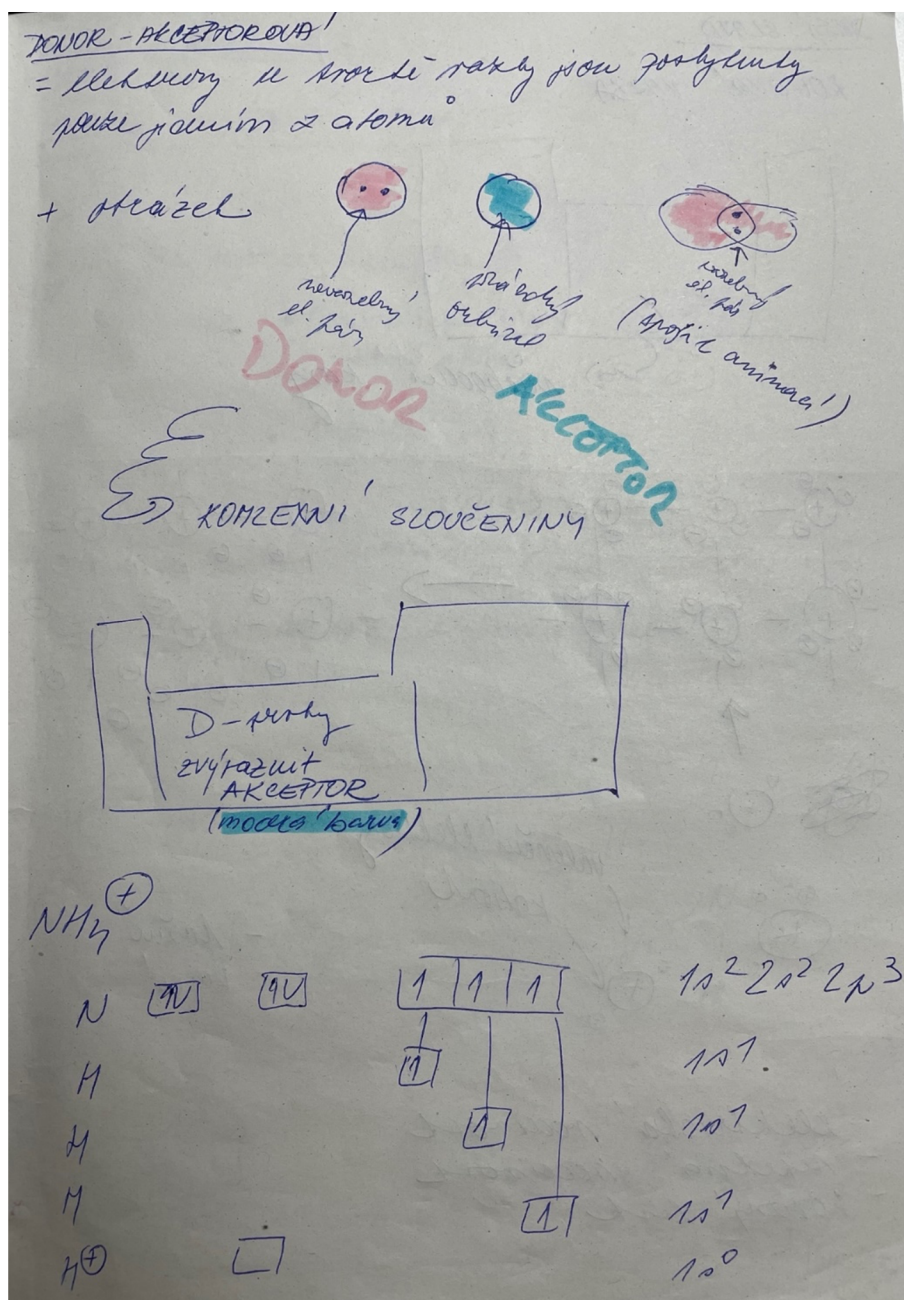 DONOR-AKCEPTOROVÁ
= elektrony ke tvorbě vazby jsou poskytnuty
pouze jedním z atomů
+ obrázek
nevazebný
el. pár
prázdný
orbital
vazebný
el. pár
(spojit animací)
DONOR
AKCEPTOR
KOMLEXNÍ SLOUČENINY
D-prvky
zvýraznit
AKCEPTOR
(modrá barva)
NH4 +
N 1s2 2s2 2p3
H 1 1s1
H 1 1s1
H 1 1s1
H+ 1s0